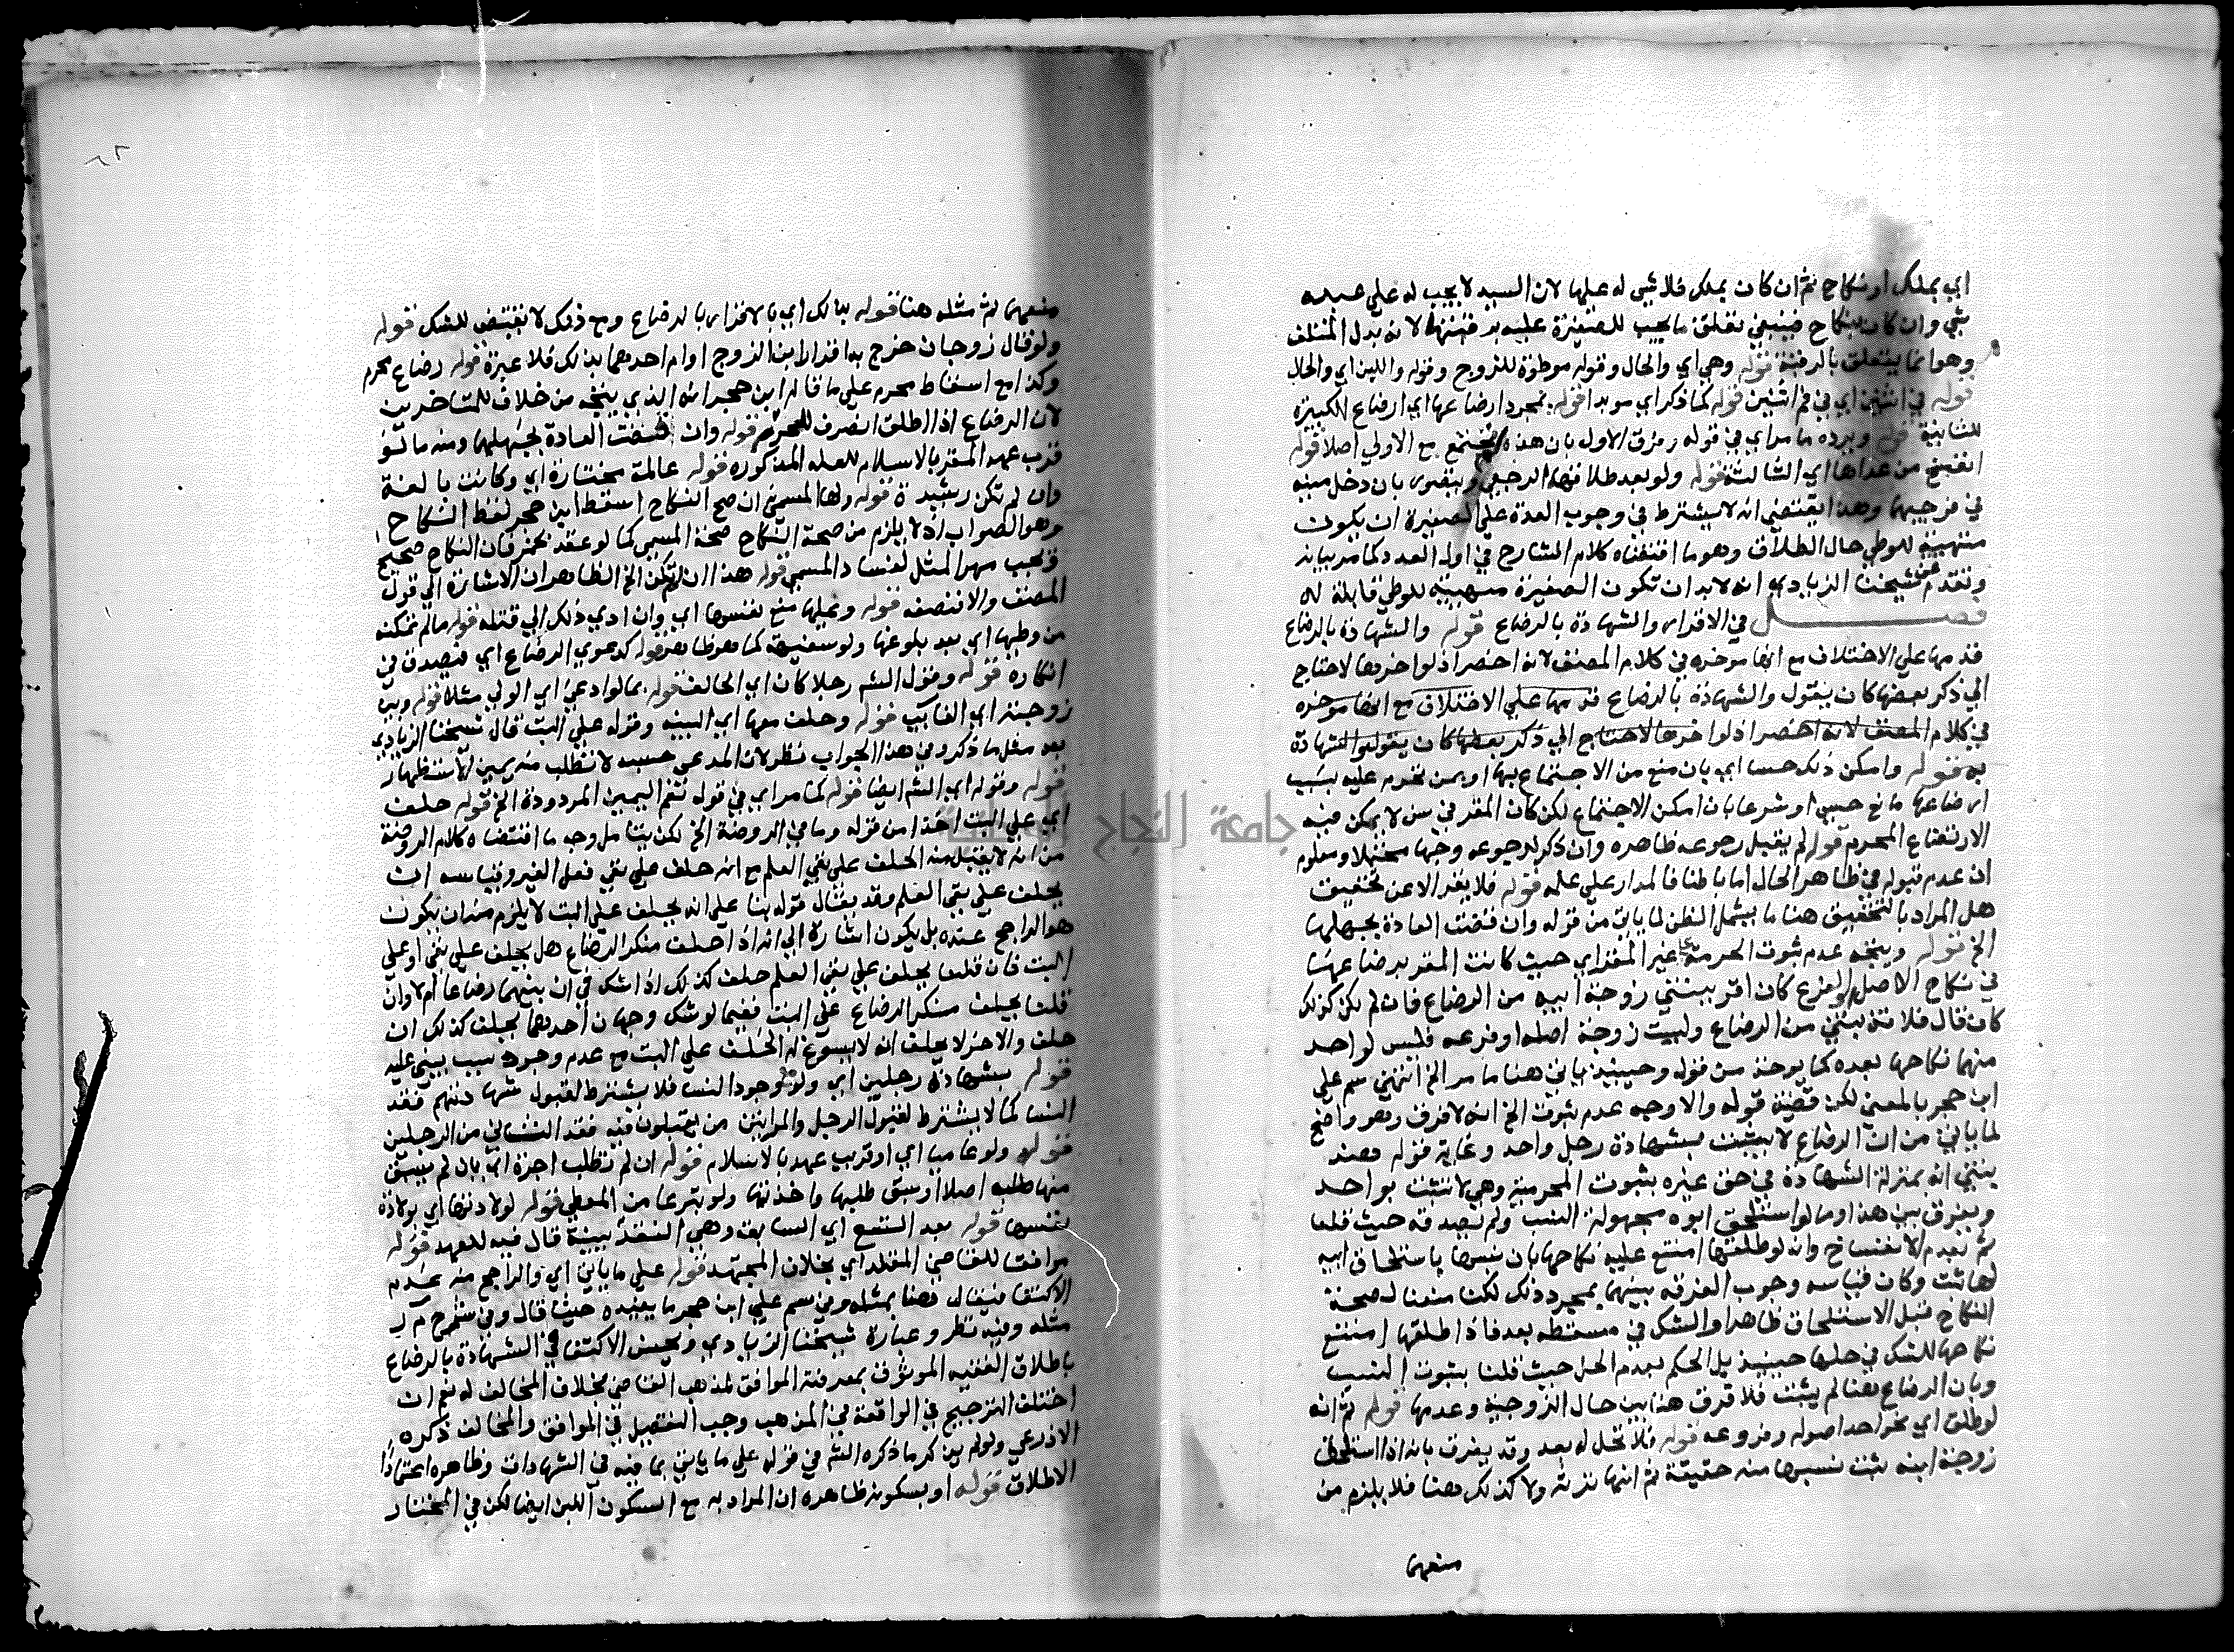 اي بملك او نكاح ثم ان كان بملك فلا شي له عليها لان السيد لا يجب له علي عبده
شي وان كان بنكاح فينبغي تعلق ما يجب للصغيرة عليه برقبتها لانه بدل المتلف
وهو انما يتعلق بالرقبة قوله وهي اي والحال وقوله موطوة للزوج وقوله واللبن اي والحال
قوله في اثنتين اي في فم اثنتين قوله كما ذكر اي موبدا قوله بمجرد ارضاعها اي ارضاع الكبيرة
للثانية قوله ويرده ما مر اي في قوله رمزق الاول بان هذه تجتمع مع الاولي اصلا قوله
انفسخ من عداها اي الثالثة قوله ولو بعد طلاقها الرجعي ويتصور بان دخل منيه
في فرجيهما وهذا يقتضي انه لا يشترط في وجوب العدة علي الصغيرة ان يكون
متهيئة للوطي حال الطلاق وهو ما اقتضاه كلام الشارح في اول العدد كما مر بيانه
وتقدم عن شيخنا الزيادي انه لا بد ان تكون الصغيرة متهيئة للوطي قابلة له
فصل في الاقرار والشهادة بالرضاع قوله والشهادة بالرضاع
قدمها علي الاختلاف مع انها موخره في كلام المصنف لانه اخصر اذ لو اخرها لاحتاج
الي ذكر بعضها كان يقول والشهادة بالرضاع قدمها علي الاختلاف مع انها موخره
في كلام المصنف لانه اخصر اذ لو اخرها لاحتاج الي ذكر بعضها كان يقول والشهادة
به قوله وامكن ذلك حسا اي بان منع من الاجتماع بها او بمن تحرم عليه بسبب
ارضاعها مانع حسي او شرعا بان امكن الاجتماع لكن كان المقر في سن لا يمكن فيه
الارتضاع المحرم قوله لم يقبل رجوعه ظاهره وان ذكر لرجوعه وجها محتملا ومعلوم
ان عدم قبوله في ظاهر الحال اما باطنا فالمدار علي علمه قوله فلا يقر الا عن تحقيق
هل المراد بالتحقيق هنا ما يشمل الظن لما ياتي من قوله وان قضت العادة بجهلهما
الخ قوله ويتجه عدم ثبوت الحرمة علي غير المقر اي حيث كانت المقر برضاعها
في نكاح الاصل او الفرع كان اقر ببنتي زوجة ابيه من الرضاع فان لم يكن كذلك
كان قال فلانة بنتي من الرضاع وليست زوجة اصله او فرعه فليس لواحد
منهما نكاحها بعده كما يوخذ من قوله وحينئذ ياتي هنا ما مر الخ انتهي سم علي
ابن حجر بالمعني لكن قضية قوله والاوجه عدم ثبوت الخ انه لا فرق وهو واضح
لما ياتي من ان الرضاع لا يثبت بشهادة رجل واحد وغاية قوله هند
بنتي انه بمنزلة الشهادة في حق غيره بثبوت المحرمية وهي لا تثبت بواحد
ويفرق بين هذا وما لو استلحق ابوه مجهولة النسب ولم يصدقه حيث قلنا
ثم بعدم الانفساخ وانه لو طلقها امتنع عليه نكاحها بان نسبها باستلحاق ابيه
لها ثبت وكان قياسه وجوب الفرقة بينهما بمجرد ذلك لكنا منعنا لصحة
النكاح قبل الاستلحاق ظاهرا والشك في مسقطه بعد فاذا طلقها امتنع
نكاحها للشك في حلها حينئذ بل الحكم بعدم الحل حيث قلنا بثبوت النسب
وبان الرضاع هنا لم يثبت فلا فرق هنا بين حال الزوجية وعدمها قوله ثم انه
لو طلق اي نحو احد اصوله وفروعه قوله فلا تحل له بعد وقد يفرق بانه اذا استلحق
زوجة ابنه ثبت نسبها منه حقيقة ثم انها ترثه ولا كذلك هنا فلا يلزم من
منعها
منعها ثم مثله هنا قوله بذلك اي بالاقرار بالرضاع ومع ذلك لا يقتضي للشك قوله
ولو قال زوجان خرج به اقرار ابن الزوج او ام احدهما بذلك فلا عبرة قوله رضاع محرم
وكذا مع اسقاط محرم علي ما قاله ابن حجر انه الذي يتجه من خلاف للمتاخرين
لان الرضاع اذا اطلق انصرف للمحرم قوله وان قضت العادة بجهلهما ومنه ما لو
قرب عهد المقر بالاسلام للعلة المذكورة قوله عالمة مختارة اي وكانت بالغة
وان لم تكن رشيدة قوله ولها المسمي ان صح النكاح اسقط ابن حجر لفظ النكاح
وهو الصواب اذ لا يلزم من صحة النكاح صحة المسمي كما لو عقد بخمر فان النكاح صحيح
ويجب مهر المثل لفساد المسمي قوله هذا ان لم تكن الخ الظاهر ان الاشارة الي قول
المصنف والا فنصفه قوله وعليها منع نفسها اي وان ادي ذلك الي قتله قوله ما لم تمكنه
من وطيها اي بعد بلوغها ولو سفيهة كما هو ظاهر قوله كدعوي الرضاع اي فيصدق في
انكاره قوله وقول الشم رجلا كان اي الحالف قوله بما لو ادعي اي الولي مثلا قوله وبين
زوجته اي الغايب قوله وحلف معها اي البينة وقوله علي البت قال شيخنا الزيادي
بعد مثل ما ذكر وفي هذا الجواب نظر لان المدعي حسبه لا تطلب منه يمين الاستظهار
قوله وقوله اي الشم ايضا قوله كما مر اي في قوله نعم اليمين المردودة الخ قوله حلف
اي علي البت اخذا من قوله وما في الروضة الخ لكن يتامل وجه ما اقتضاه كلام الروضة
من انه لا يقبل منه الحلف علي نفي العلم مع انه حلف علي نفي فعل الغير وقياسه ان
يحلف علي نفي العلم وقد يقال قوله بنا علي انه يحلف علي البت لا يلزم منه ان يكون
هو الراجح عنده بل يكون اشارة الي انه اذا حلف منكر الرضاع هل يحلف علي نفي او علي
البت فان قلنا يحلف علي نفي العلم حلف كذلك اذا شك في ان بينهما رضاعا ام لا وان
قلنا يحلف منكر الرضاع علي البت ففيما لو شك وجهان احدهما يحلف كذلك ان
حلف والاخر لا يحلف انه لا يسوغ له الحلف علي البت مع عدم وجود سبب يبني عليه
قوله بشهادة رجلين اي ولو مع وجود النسا فلا يشترط لقبول شهادتهم فقد
النسا كما لا يشترط لقبول الرجل والمراتين من يقبلون فيه فقد الثاني من الرجلين
قوله ولو عاميا اي او قريب عهد بالاسلام قوله ان لم تطلب اجرة اي بان لم يسبق
منها طلبه اصلا او سبق طلبها واخذتها ولو تبرعا من المعطي قوله لولادتها اي بولادة
نفسها قوله بعد التتبع اي السابق وهي النقد بينة قال فيه للعهد قوله
موافقا للقاضي المقلد اي بخلاف المجتهد قوله علي ما ياتي اي والراجح منه عدم
الاكتفا فيقال هنا بمثله وفي سم علي ابن حجر ما يفيده حيث قال وفي شرح م ر
مثله وفيه نظر وعبارة شيخنا الزيادي ويحسن الاكتفا في الشهادة بالرضاع
باطلاق الفقيه الموثوق بمعرفته الموافق لمذهب القاضي بخلاف المخالف له نعم ان
اختلف الترجيح في الواقعة في المذهب وجب التفصيل في الموافق والمخالف ذكره
الاذرعي ولو لم يذكر ما ذكره الشم في قوله علي ما ياتي بما فيه في الشهادات وظاهره اعتماد
الاطلاق قوله او بسكونه ظاهره ان المراد به مع السكون اللبن ايضا لكن في المختار